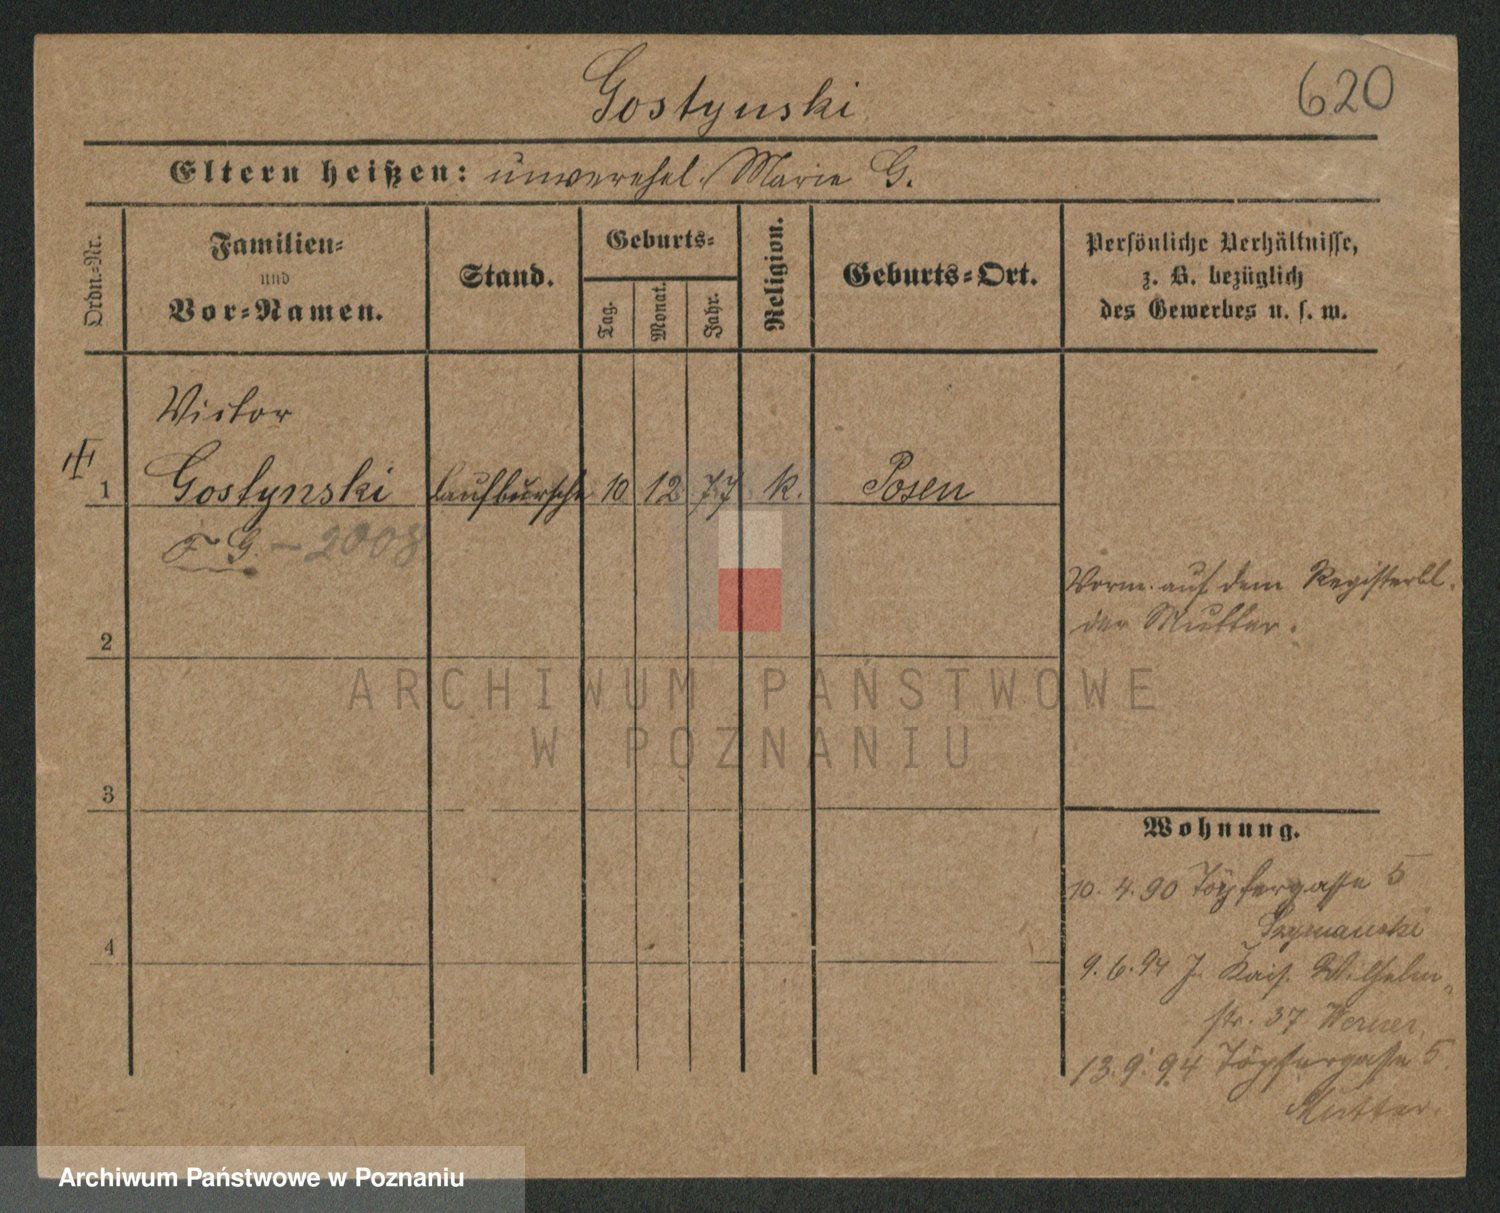 Gostynski
620
Eltern heißen: unverehel. Marie G.
Ordn.-Nr.
Familien-
und
Vor-Namen.
Stand.
Geburts-
Tag.
Monat.
Jahr.
Religion.
Geburts-Ort.
Persönliche Verhältnisse,
z. B. bezüglich
des Gewerbes u. s. w.
Victor
1 Gostynski Laufbursche 10 12 77 k. Posen
G. - 2008
Verm. auf dem Registerbl.
der Mutter.
2
3
4
Wohnung.
10. 4. 90 Töpfergasse 5
Szymanski
9. 6. 94 J. Kais. Wilhelm-
str. 37 Werner.
13. 9. 94 Töpfergasse 5.
Mutter.
ARCHIWUM PAŃSTWOWE
W POZNANIU
Archiwum Państwowe w Poznaniu